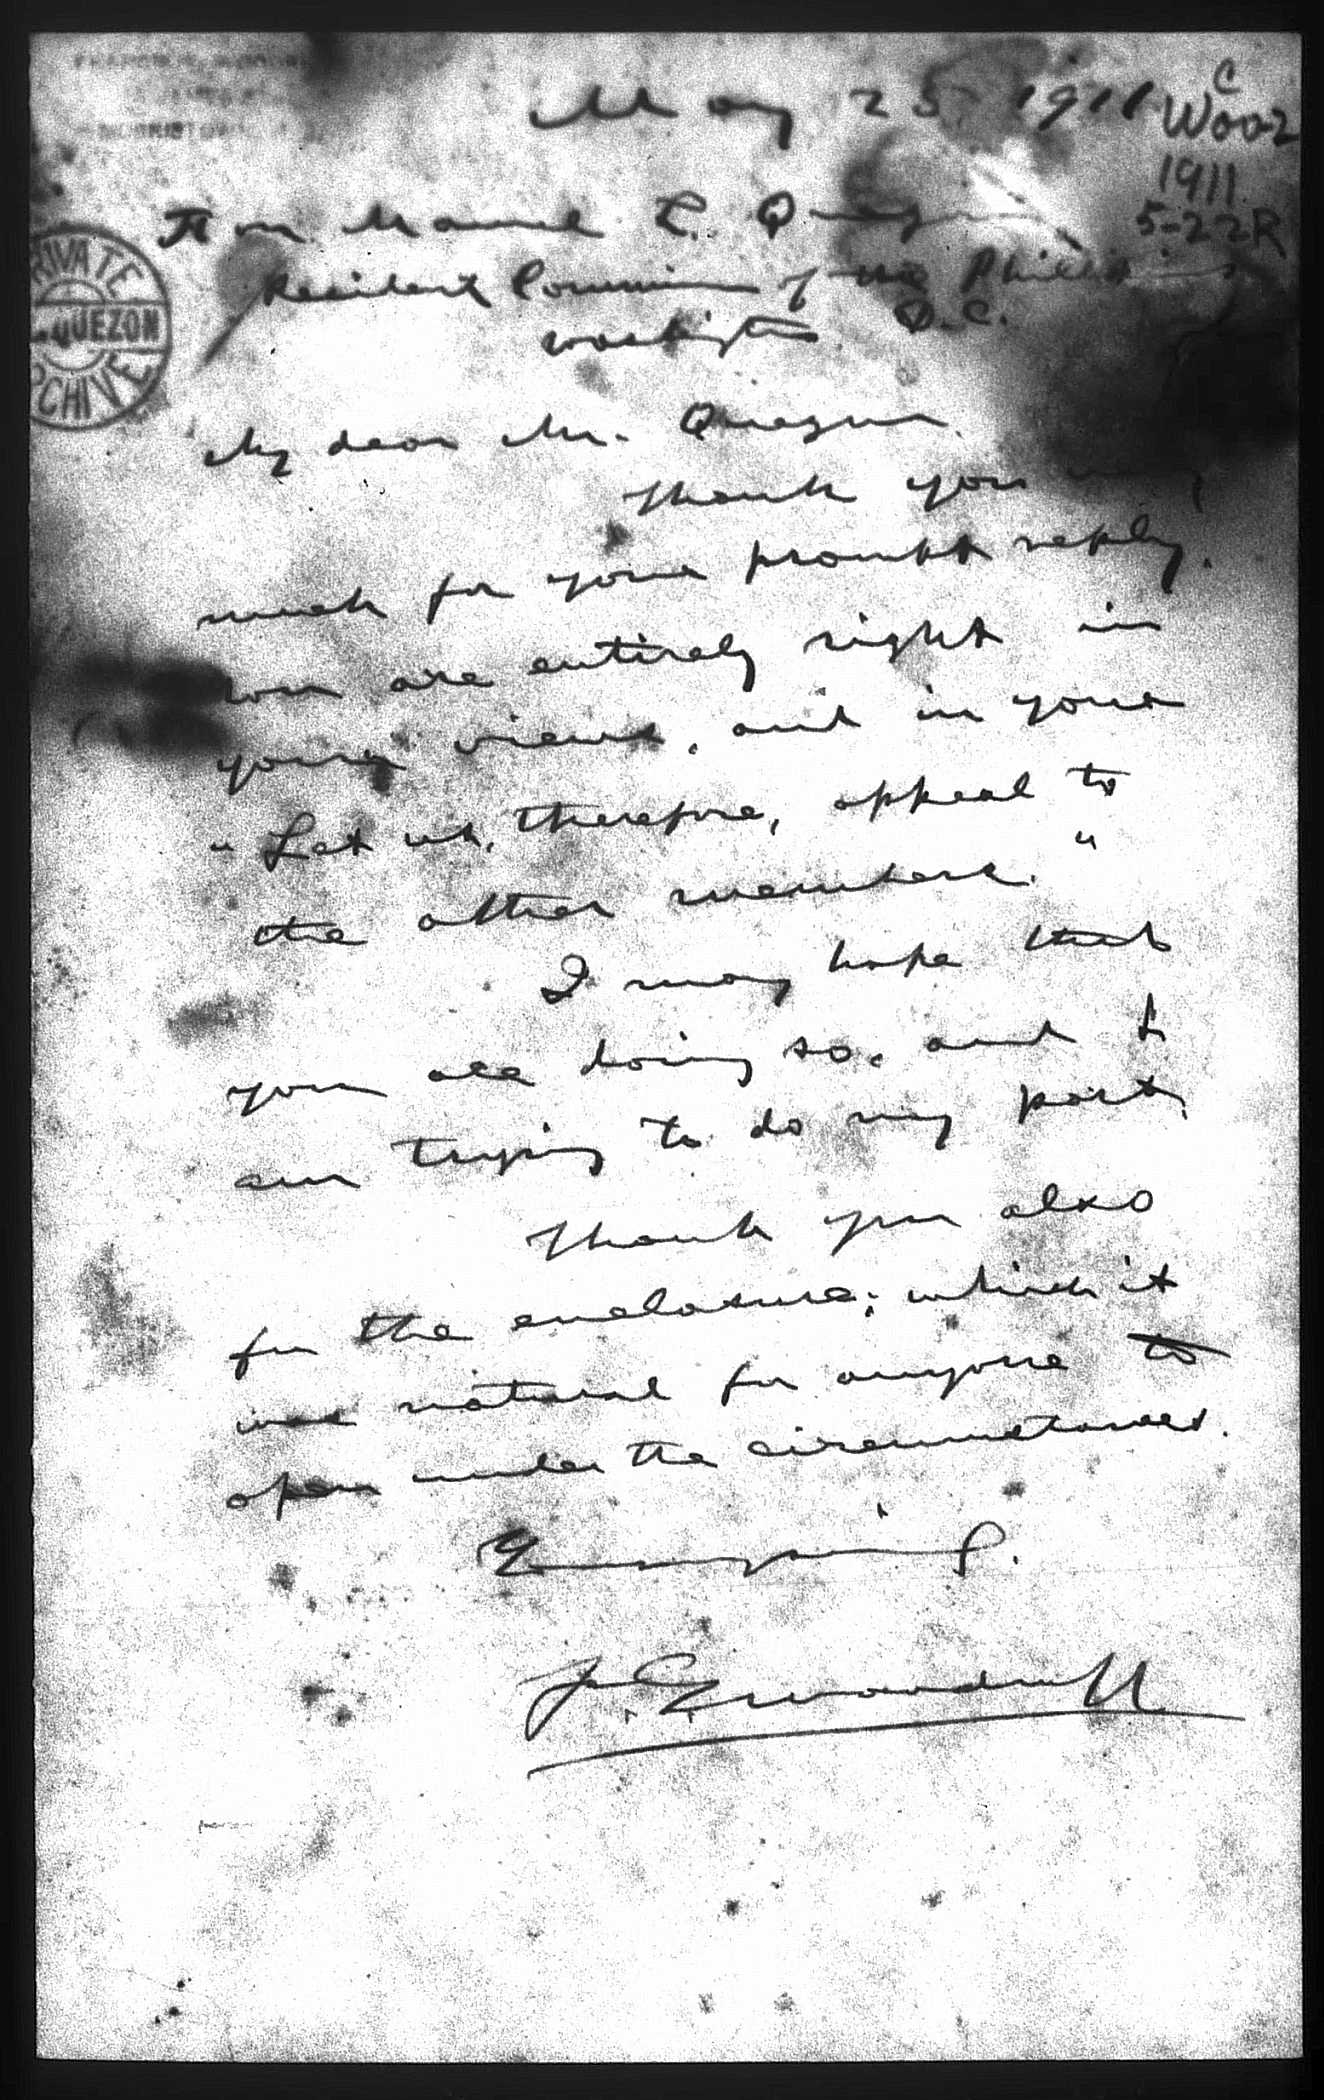 MORRISTOWN
May 25, 1911
C
Woo-2
1911
5-22R
Hon Manuel L. Quezon
Resident Commissioner of the Philippines
Washington D.C.
PRIVATE
QUEZON
ARCHIVE
My dear Mr. Quezon
Thank you very
much for your prompt reply.
You are entirely right in
your views, and in your
"Let us, therefore, appeal to
the other members."
I may hope that
you are doing so, and I
am trying to do my part.
Thank you also
for the enclosure; which it
was natural for anyone to
open under the circumstances.
E. Woodruff